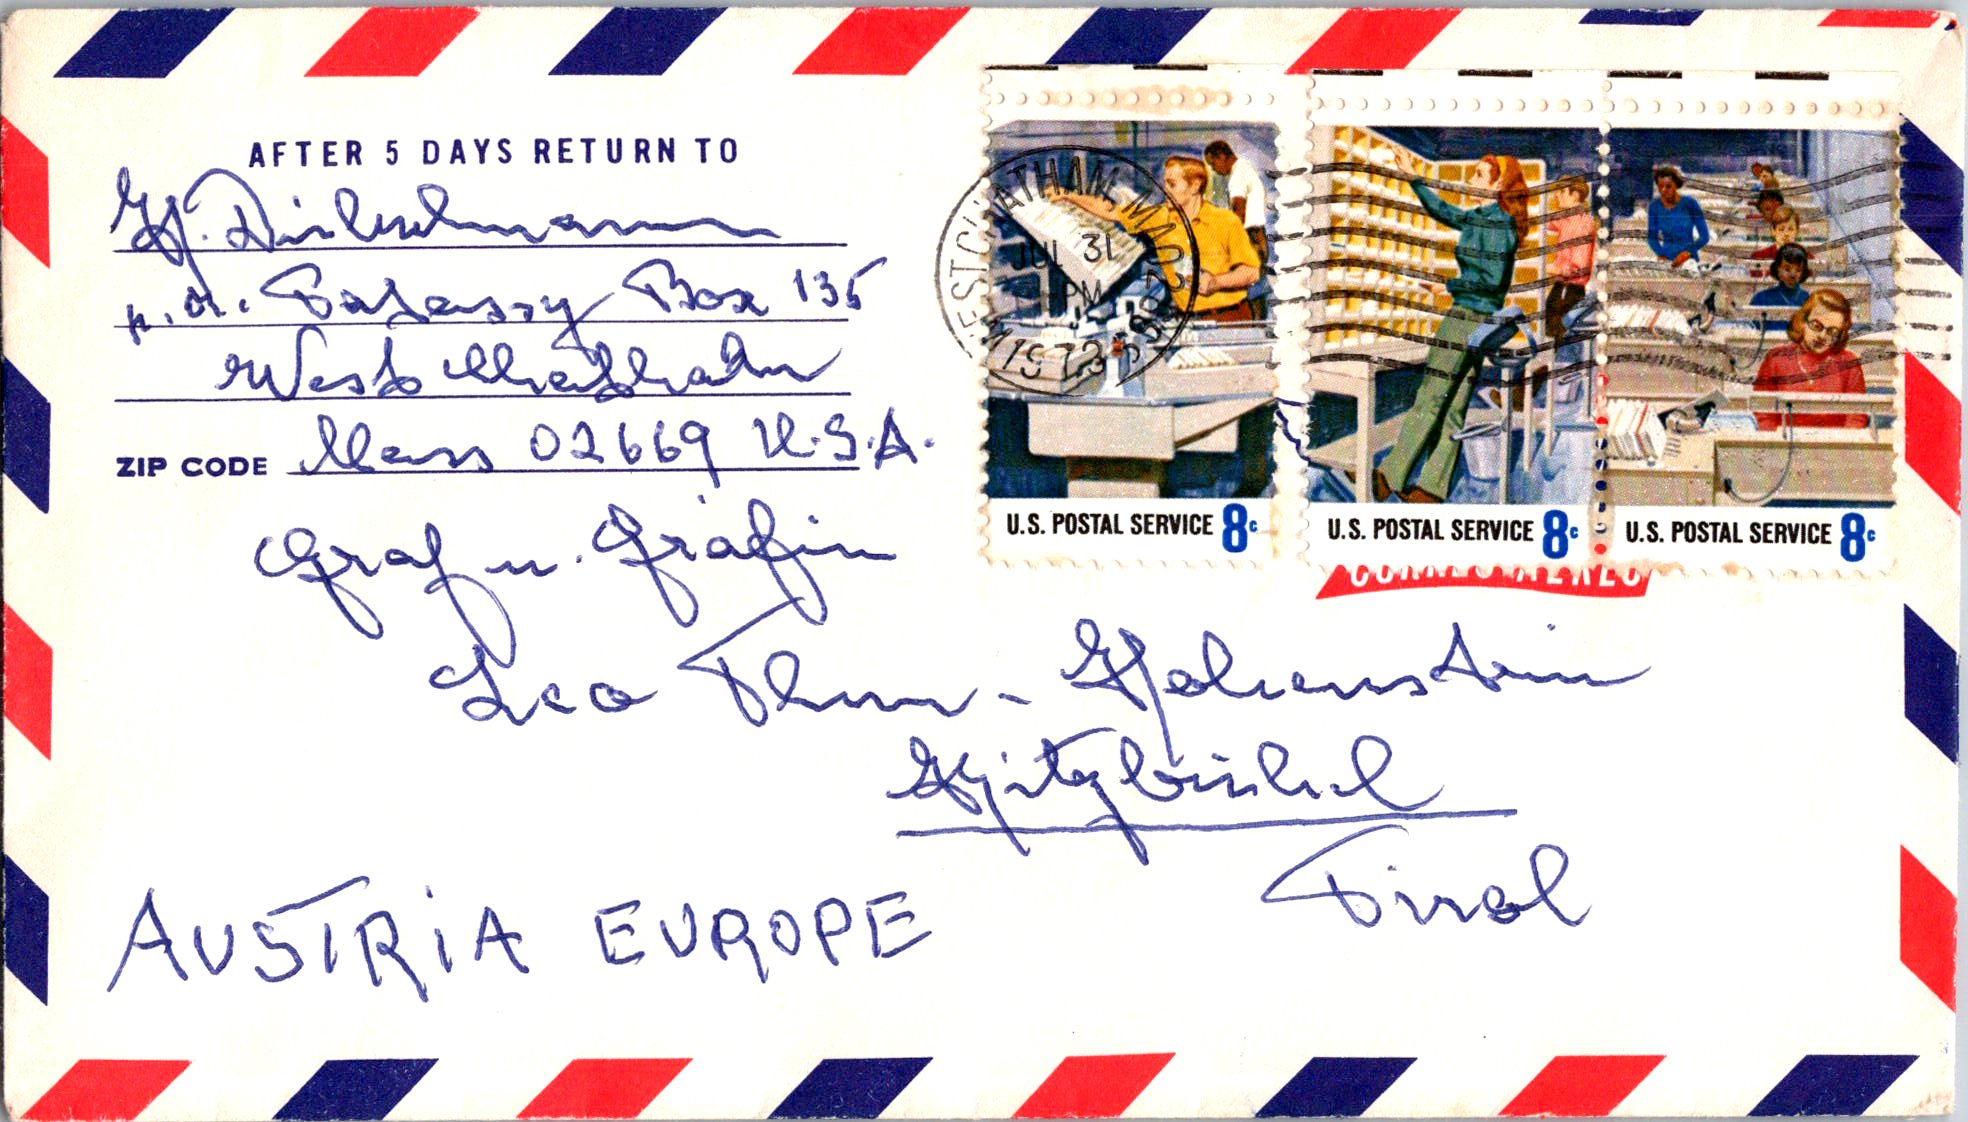 AFTER 5 DAYS RETURN TO
H.
Box 135
West Chatham
ZIP CODE Mass 02669 U.S.A.
WEST CHATHAM, MA 02669
JUL 31
PM
1973
U.S. POSTAL SERVICE 8c
U.S. POSTAL SERVICE 8c
U.S. POSTAL SERVICE 8c
Graf u. Gräfin
Leo Thun-Hohenstein
Kitzbühel
Tirol
AUSTRIA EUROPE